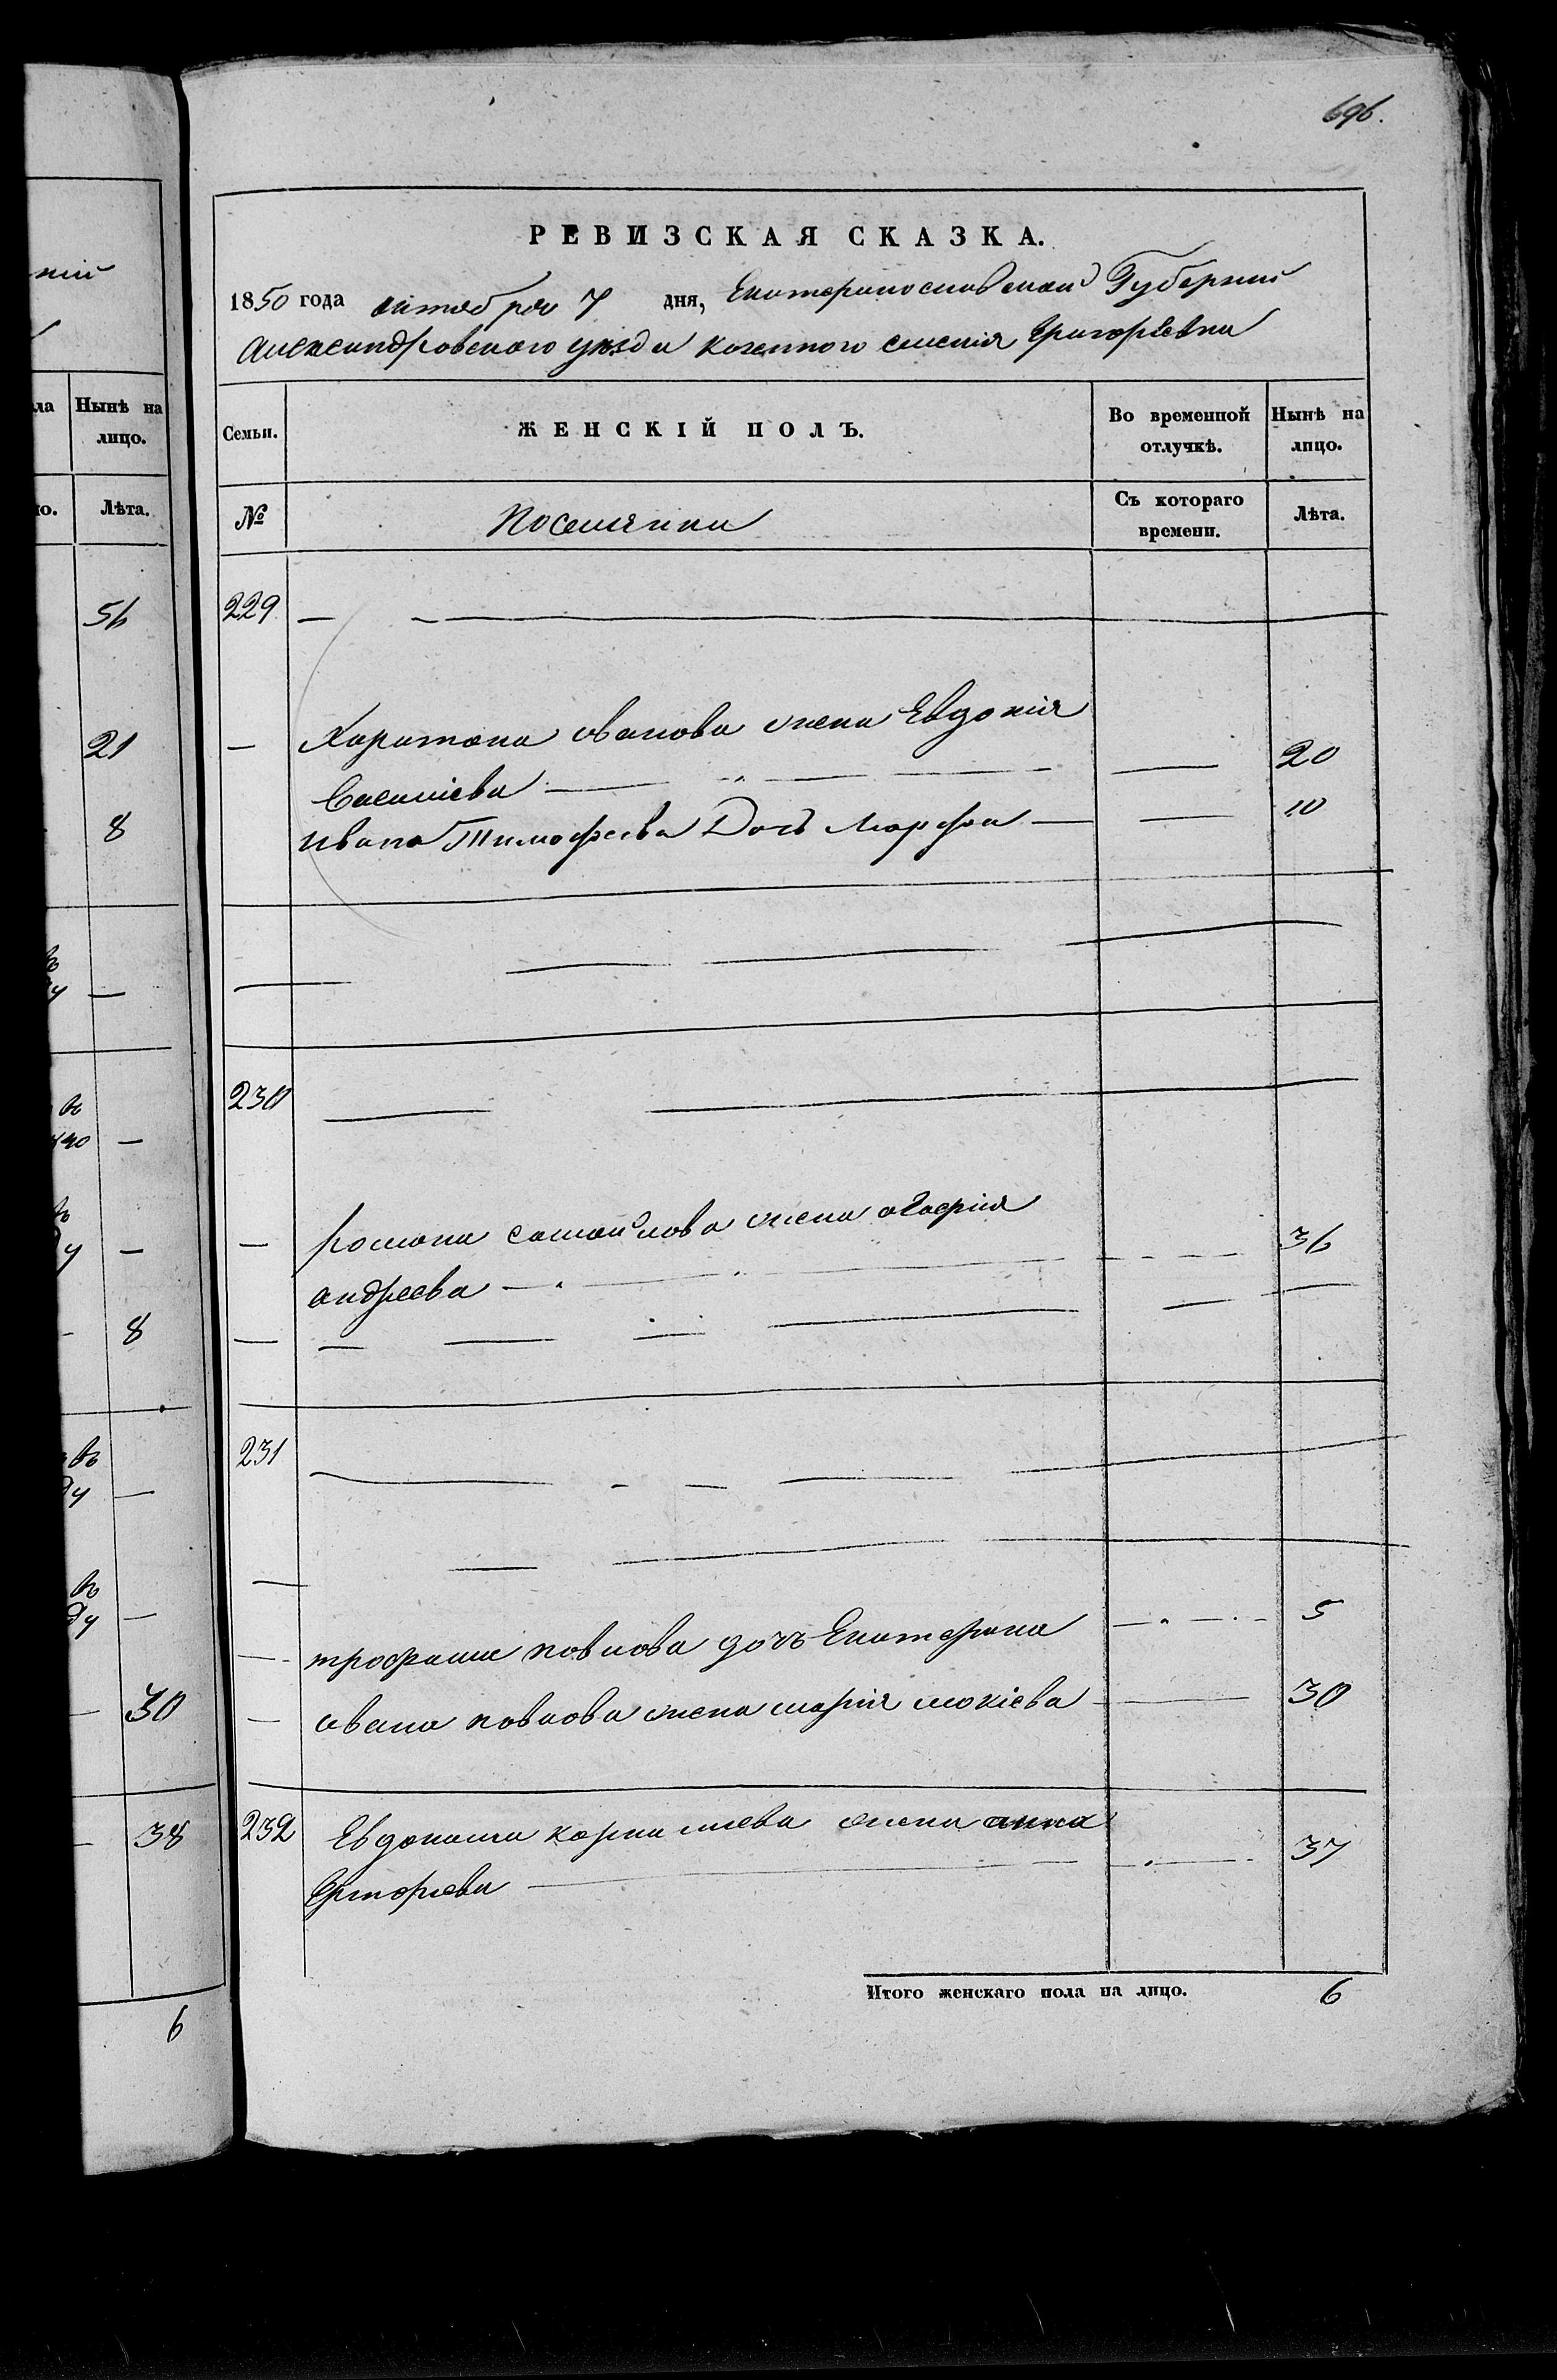 696.
РЕВИЗСКАЯ СКАЗКА.
1850 года октября 7 дня, Екатеринославской Губерніи
Александровского уезда казенного селенія Григорьевки
Семьи.
ЖЕНСКІЙ ПОЛЪ.
Во временной отлучкѣ.
Нынѣ на лицо.
№
Поселянки
Съ котораго времени.
Лѣта.
229
Харитона иванова жена Евдокія
Василіева 20
Ивана Тимофеева Дочь Марфа 10
230
романа самойлова жена
андреева 36
231
трофима павлова дочь Екатерина 5
ивана павлова жена марія мокіева 30
232 Евдокима карпа жена анна
Григорьева 37
Итого женскаго пола на лицо. 6
ній
ла
Нынѣ на лицо.
ю.
Лѣта.
56
21
8
8
30
38
6